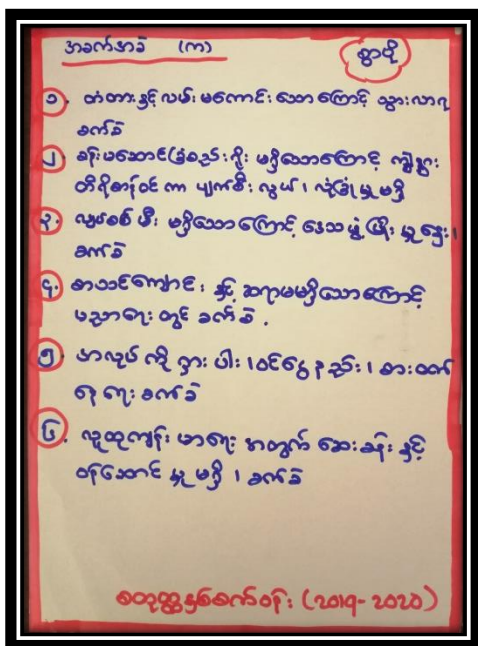 အခက်အခဲ (က)
စွာဝို
၁. တံတားနှင့် လမ်း မကောင်း သောကြောင့် သွားလာရ
ခက်ခဲ
၂. စည်းရိုး မရှိသောကြောင့် ကျွဲနွား
တိရိစ္ဆာန်ဝင်ကာ ပျက်စီး လွယ်၊ လုံခြုံမှု မရှိ
၃. လျှပ်စစ် မီး မရှိသောကြောင့် ဒေသ ဖွံ့ဖြိုး မှု နှေး၊
ခက်ခဲ
၄. စာသင်ကျောင်း နှင့် ဆရာမမရှိသောကြောင့်
ပညာရေး တွင် ခက်ခဲ.
၅. အလုပ် ကိုင် ရှားပါး၊ ဝင်ငွေနည်း၊ စားဝတ်
နေရေး ခက်ခဲ
၆. လူထုကျန်း မာရေး အတွက် ဆေးခန်း နှင့်
ဝန်ဆောင် မှု မရှိ၊ ခက်ခဲ
စတုတ္ထနှစ်စက်ဝန်း (2019-2020)